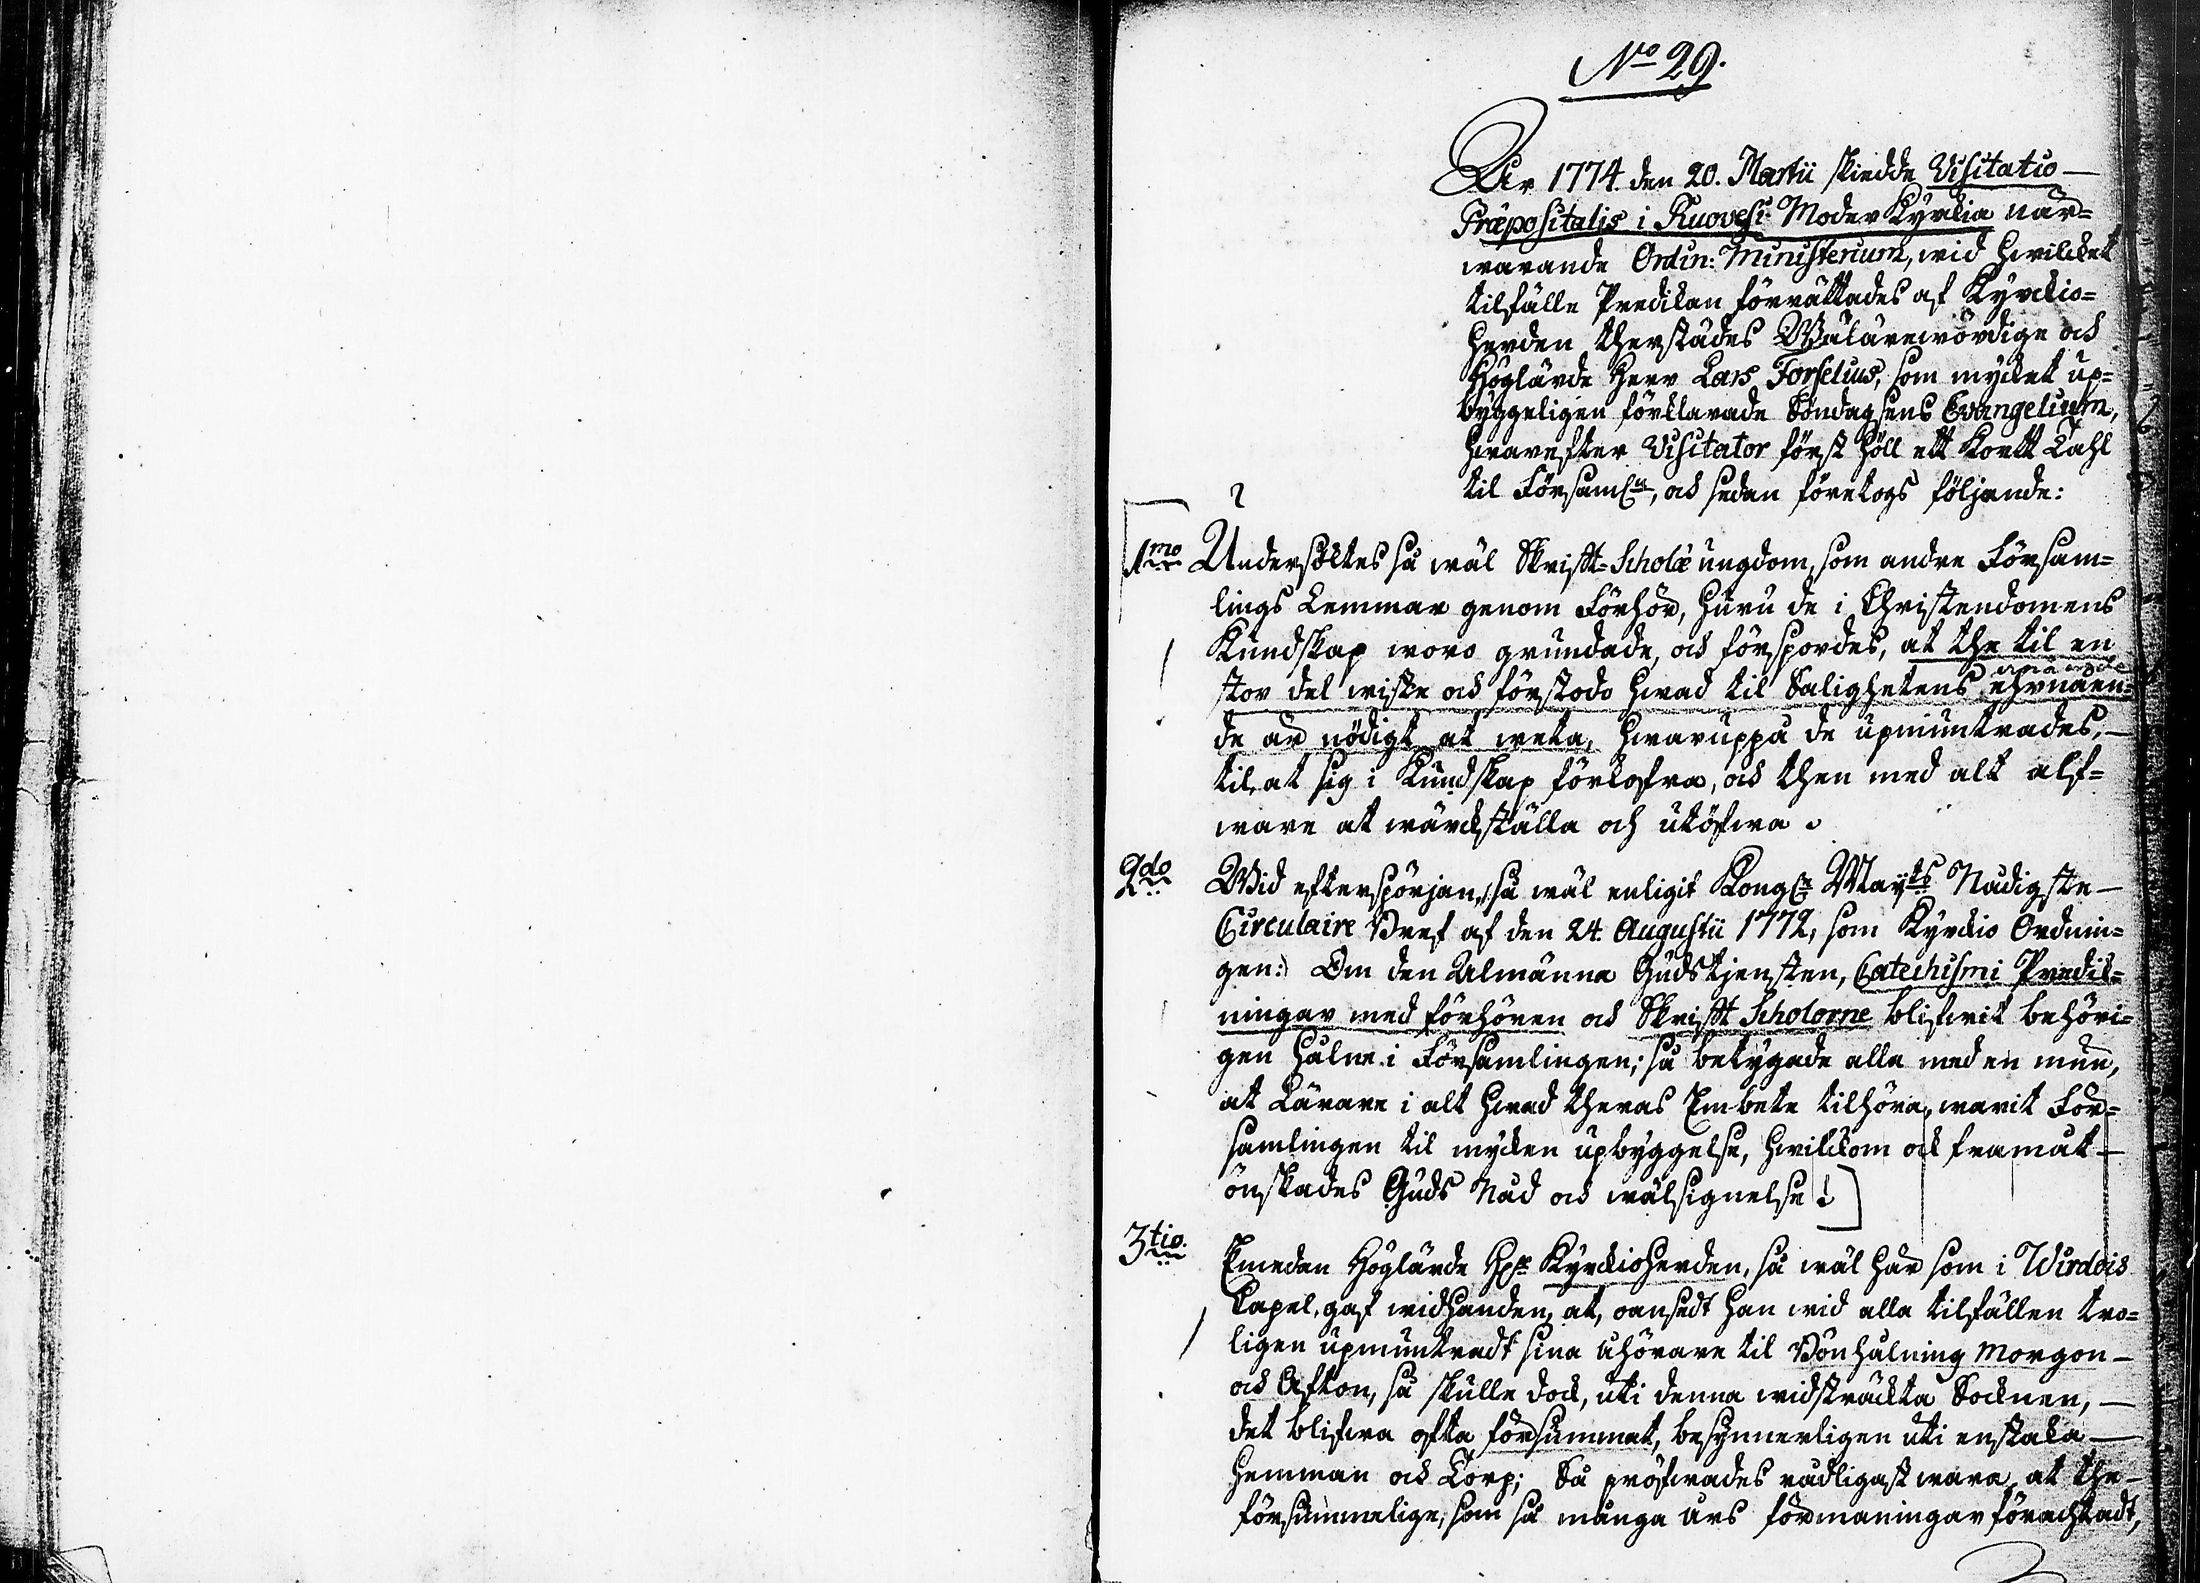 No 29.
År 1774 den 20. Martii skiedde Visitatio
Præpositalis i Ruovesi Moder Kyrkia när=
warande Ordin: Ministerium, wid hwilcket
tilfälle Predikan förrättades af Kyrckio=
herden therstädes Wälärewördige och
Höglärde Herr Lars Forselius, som mycket up=
byggeligen förklarade Söndagsens Evangelium,
hwarefter Visitator först höll ett kortt Tahl
til Församl:n, och sedan företogs följande:
1mo Undersöktes så wäl Skrifft=Scholæ ungdom, som andre Försam=
lings Lemmar genom Förhör, huru de i Christendomens
Kundskap woro grundade, och förspordes, at the til en
stor del wiste och förstodo hwad til Salighetens ehrnåen=
de är nödigt at weta, hwaruppå de upmuntrades,
til, at sig i Kundskap förkofra, och then med alt alf=
ware at wärckställa och utöfwa.
2do Wid efterspörjan, så wäl enligit Kongl. Mayts Nådigste
Circulaire Bref af den 24. Augustii 1772, som Kyrckio Ordnin=
gen: Om den Almänna Gudstjensten, Catechismi Predik=
ningar med förhören och Skrifft Scholorne blifwit behöri=
gen hålne i Församlingen; så betygade alla med en mun,
at Lärare i alt hwad theras Embete tilhöra, warit För=
samlingen til mycken upbyggelse, hwilckom ock framåt
önskades Guds Nåd och wälsignelse!
3tio. Emedan Höglärde Hr Kyrckioherden, så wäl här som i Wirdois
Capel, gaf widhanden, at, oansedt han wid alla tilfällen tro=
ligen upmuntradt sina åhörare til Bönhålning Morgon
och Afton, så skulle dock, uti denna widsträckta Socknen,
det blifwa ofta försummat, besynnerligen uti enstaka
Hemman och Torp; Så pröfwades rådligast wara, at the
försummelige, som så många års förmaningar förachtadt,